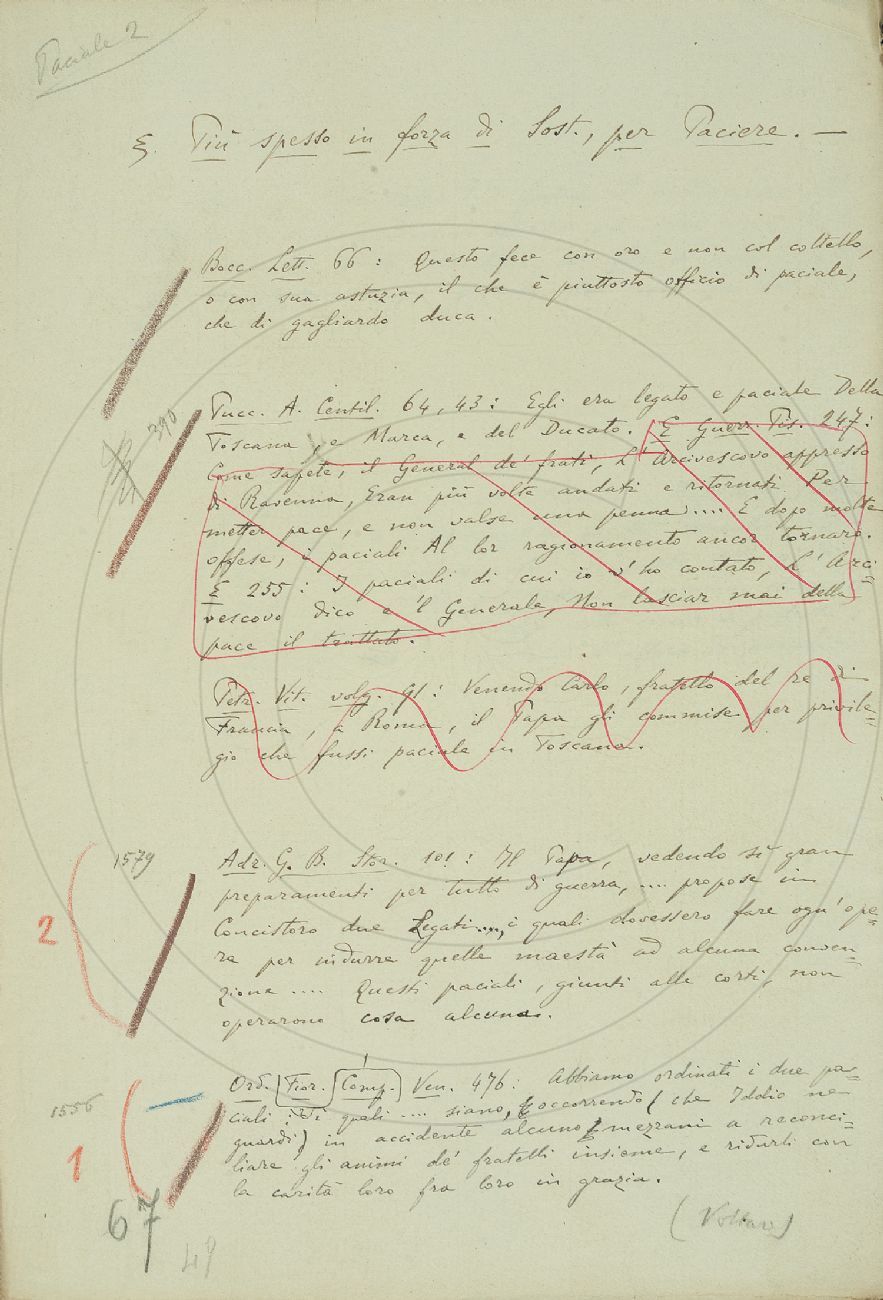 Paciale 2
§. Più spesso in forza di Sost., per Paciere. —
Bocc. Lett. 66: Questo fece con oro e non col coltello,
o con sua astuzia, il che è piuttosto officio di paciale,
che di gagliardo duca.
390
Pucc. A. Centil. 64, 43: Egli era legato e paciale Della
Toscana, e Marca, e del Ducato. E Guerr. Pis. 247:
Come sapete, il General de' frati, L'Arcivescovo appresso
di Ravenna, Eran più volte andati e ritornati Per
metter pace, e non valse una penna.... E dopo molte
offese, i paciali Al lor ragionamento ancor tornaro.
E 255: I paciali di cui io v'ho contato, L'Arci-
vescovo dico e 'l Generale, Non lasciar mai della
pace il trattato.
Petr. Vit. volg. 91: Venendo Carlo, fratello del re di
Francia, a Roma, il Papa gli commise per privile-
gio che fussi paciale in Toscana.
1579
Adr. G. B. Stor. 101: Il Papa, vedendo sì gran
preparamenti per tutto di guerra, .... propose in
2
Concistoro due Legati...., i quali dovessero fare ogn' ope-
ra per indurre quelle maestà ad alcuna conven-
zione .... Questi paciali, giunti alle corti, non
operarono cosa alcuna.
1556
Ord. Fior. Comp. Ven. 476. Abbiamo ordinati i due pa-
ciali; i quali .... siano, occorrendo (che Iddio ne
1
guardi) in accidente alcuno, mezzani a reconci-
liare gli animi de' fratelli insieme, e ridurli con
la carità loro fra loro in grazia.
67
48